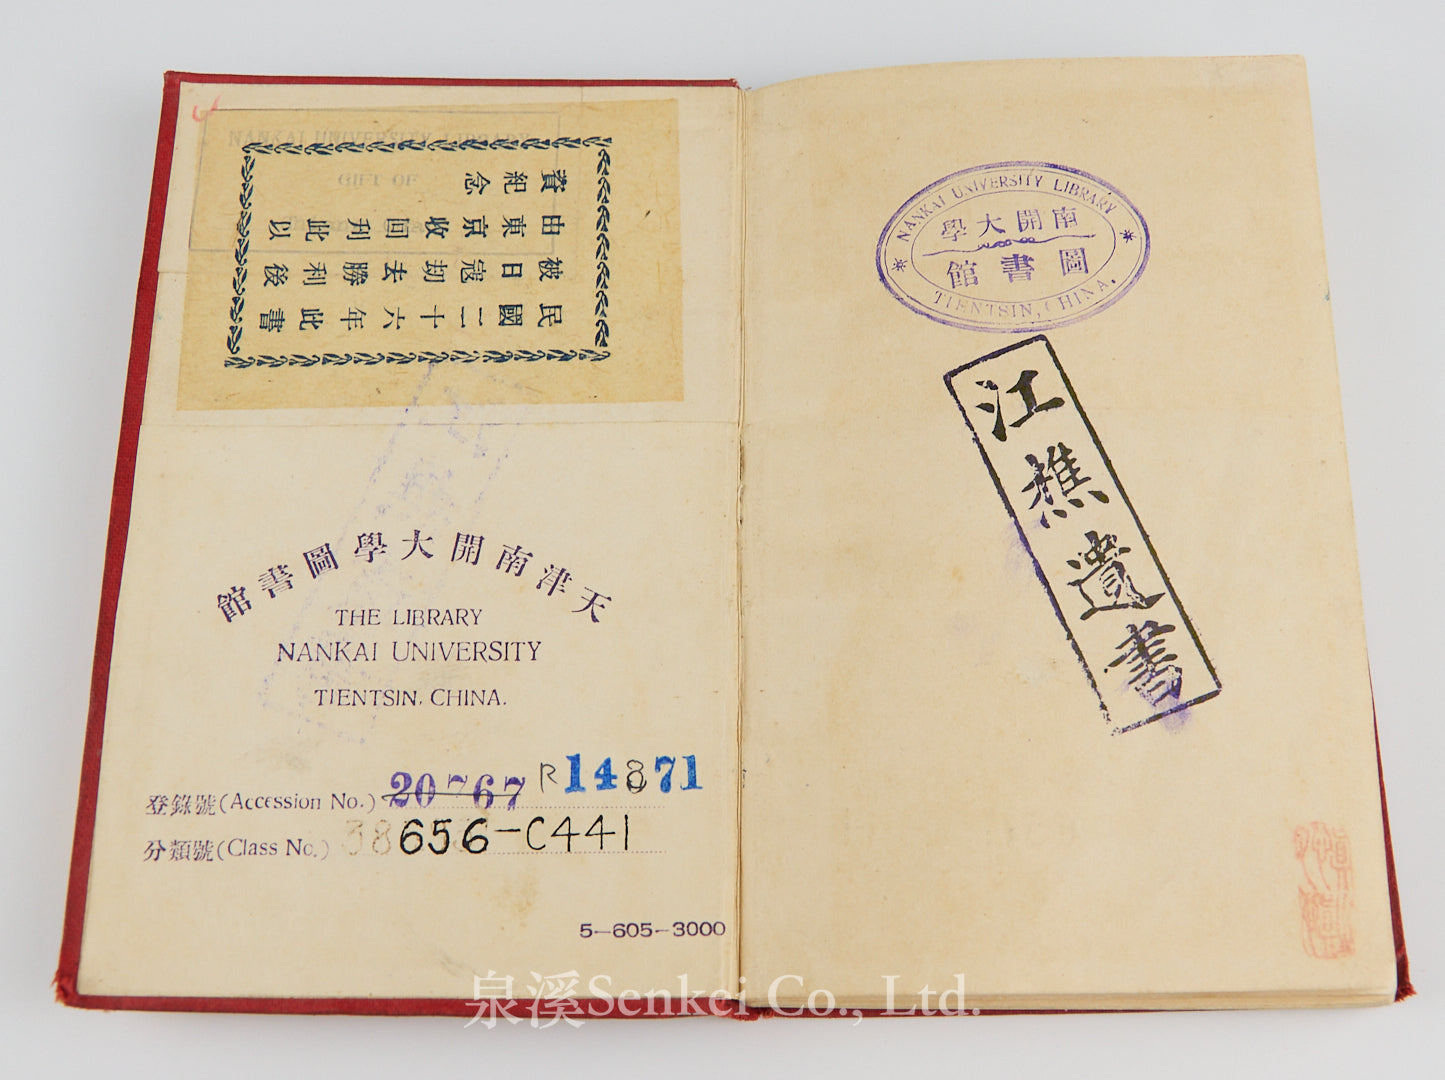 NANKAI UNIVERSITY LIBRARY
GIFT OF
民國二十六年此書
被日寇劫去勝利後
由東京收回刋此以
資紀念
天津南開大學圖書館
THE LIBRARY
NANKAI UNIVERSITY
TIENTSIN, CHINA.
登錄號(Accession No.) 20767 R14871
分類號(Class No.) 656-C441
5-605-3000
NANKAI UNIVERSITY LIBRARY
南開大學
圖書館
TIENTSIN, CHINA.
江樵遺書
泉溪Senkei Co., Ltd.